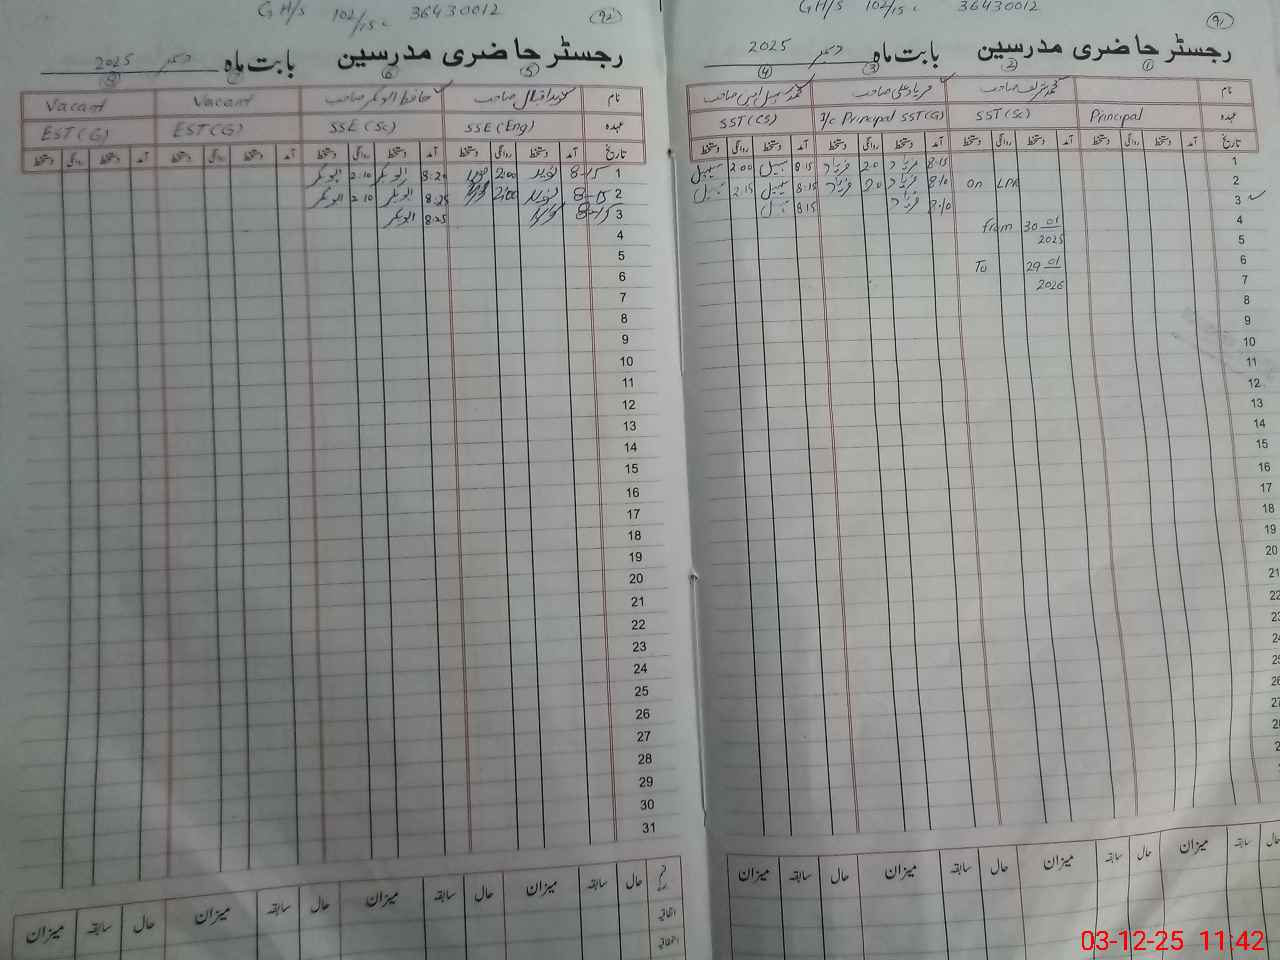 GH/S 102/15c 36430012
91
رجسٹر حاضری مدرسین بابت ماہ دسمبر 2025
1 2 3 4
نام محمد شریف صاحب فریاد علی صاحب
عہدہ Principal SST(Sc) I/c Principal SST(G) SST(CS)
تاریخ آمد دستخط روانگی دستخط آمد دستخط روانگی دستخط آمد دستخط روانگی دستخط آمد دستخط روانگی دستخط
1 8.15 فریاد 2.0 فریاد 8.15 سہیل 2.00 سہیل
2 On LPR 8.10 فریاد 2.0 فریاد 8.15 سہیل 2.15 سہیل
3 8.10 فریاد 8.15 سہیل
4 From 30 01
5 2025
6 To 29 01
7 2026
8
9
10
11
12
13
14
15
16
17
18
19
20
21
22
23
24
25
26
27
میزان سابقہ حال میزان سابقہ حال میزان حال سابقہ میزان
GH/S 102/15c 36430012
92
رجسٹر حاضری مدرسین بابت ماہ دسمبر 2025
5 6
نام نوید اقبال صاحب حافظ ابوبکر صاحب Vacant Vacant
عہدہ SSE(Eng) SSE(Sc) EST(G) EST(G)
تاریخ آمد دستخط روانگی دستخط آمد دستخط روانگی دستخط آمد دستخط روانگی دستخط آمد دستخط روانگی دستخط
1 8-15 نوید 2.00 نوید 8.20 ابوبکر 2.10 ابوبکر
2 8-15 نوید 2.00 نوید 8.25 ابوبکر 2.10 ابوبکر
3 8-15 نوید 8.25 ابوبکر
4
5
6
7
8
9
10
11
12
13
14
15
16
17
18
19
20
21
22
23
24
25
26
27
28
29
30
31
حال سابقہ میزان حال سابقہ میزان حال سابقہ میزان حال سابقہ میزان
اتفاقیہ
03-12-25 11:42